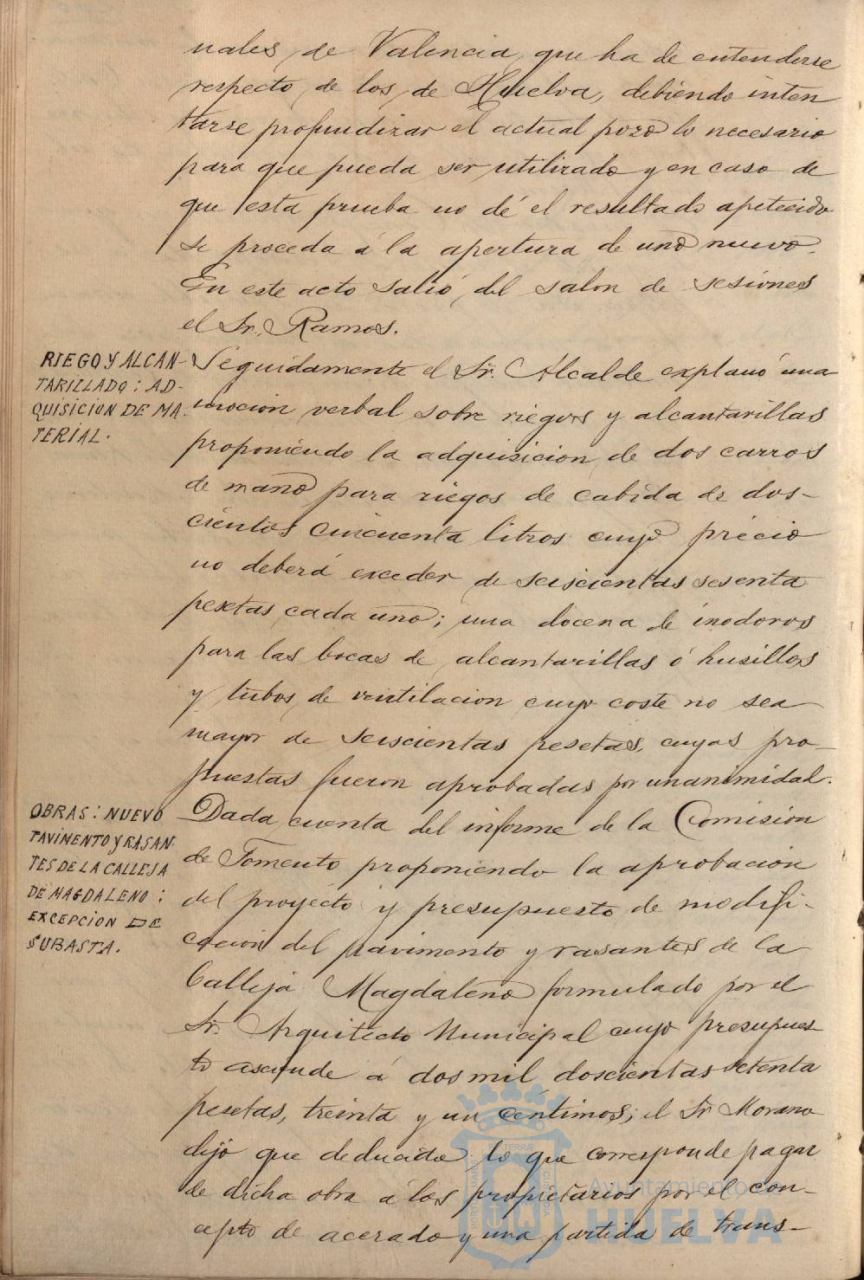 nales, de Valencia, que ha de entenderse
respecto de los de Huelva, debiendo inten
tarse profundizar el actual pozo lo necesario
para que pueda ser utilizado y en caso de
que esta prueba no dé el resultado apetecido
se proceda á la apertura de uno nuevo.
En este acto salió del salon de sesiones
el Sr. Ramos.
RIEGO Y ALCAN-
TARILLADO: AD-
QUISICION DE MA-
TERIAL.
Seguidamente el Sr. Alcalde explanó una
mocion verbal sobre riegos y alcantarillas
proponiendo la adquisicion de dos carros
de mano para riegos de cabida de dos-
cientos cincuenta litros cuyo precio
no deberá exceder de seiscientas sesenta
pesetas cada uno; una docena de inodoros
para las bocas de alcantarillas ó husillos
y tubos de ventilacion cuyo coste no sea
mayor de seiscientas pesetas, cuyas pro-
puestas fueron aprobadas por unanimidad.
OBRAS: NUEVO
PAVIMENTO Y RASAN-
TES DE LA CALLEJA
DE MAGDALENO:
EXCEPCION DE
SUBASTA.
Dada cuenta del informe de la Comision
de Fomento proponiendo la aprobacion
del proyecto y presupuesto de modifi-
cacion del pavimento y rasantes de la
Calleja Magdaleno formulado por el
Sr. Arquitecto Municipal cuyo presupues-
to asciende á dos mil doscientas setenta
pesetas, treinta y un centimos; el Sr. Morano
dijo que deducido lo que corresponde pagar
de dicha obra á los propietarios por el con-
cepto de acerado y una partida de trans-
Ayuntamiento de
HUELVA